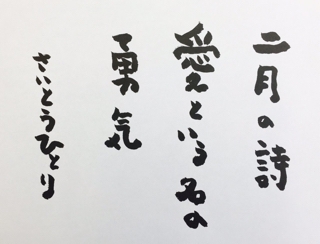 二月の詩
愛という名の
勇気
さいとうひとり